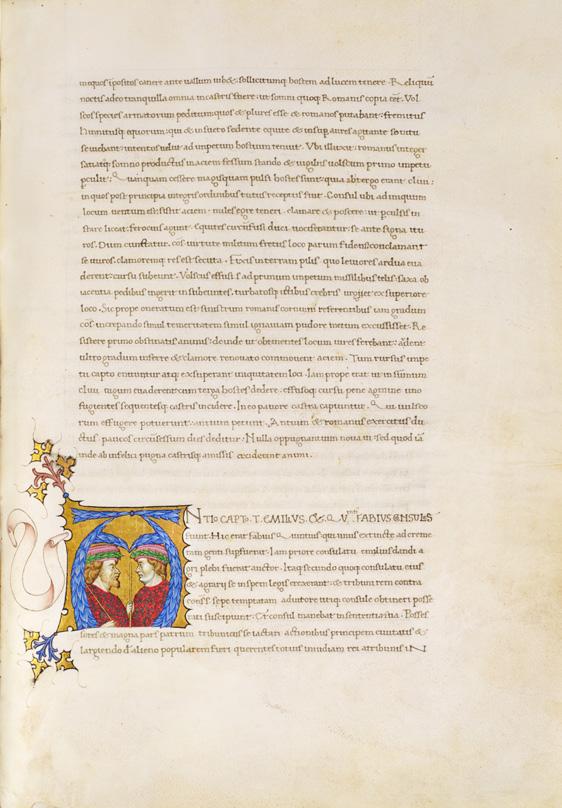 in equos īpositos canere ante uallum iubet: sollicitumq; hostem ad lucem tenere. Reliquū
noctis adeo tranquilla omnia in castris fuere: ut somni quoq; Romanis copia eēt. Vol
scos species armatorum peditum quos & plures esse & romanos putabant: fremitus
hinnitusq; equorum: qui & insueto sedente equite & insup aures agitante sonitu
seuiebant: intentos uelut ad impetum hostium tenuit. Vbi illuxit: romanus integer
satiatusq; somno productus in aciem fessum stando & uigiliis uolscum primo impetu
pculit: Quanquam cessere magis quam pulsi hostes sunt: quia ab tergo erant cliui:
in quos post principia integris ordinibus tutus receptus fuit. Consul ubi ad iniquum
locum uentum est: sistit aciem: miles egre teneri: clamare & poscere: ut pculsis in
stare liceat: ferocius agunt equites: circūfusi duci uociferantur: se ante signa itu
ros. Dum cunctatur. cos̄ uirtute militum fretus loco parum fidens: conclamant
se ituros. clamoremq; res est secuta. Fixis in terram pilis quo leuiores ardua eua
derent: cursu subeunt. Volscus effusis ad primum impetum missilibus telis: saxa ob
iacentia pedibus ingerit in subeuntes. turbatosq; ictibus crebris urget ex superiore
loco. Sic prope oneratum est sinistrum romanis cornu: ni referentibus iam gradum
cos̄ increpando simul temeritatem simul ignauiam pudore metum excussisset. Re
sistere primo obstinatis animis: deinde ut obtinentes locum uires ferebant: audent
ultro gradum inferre & clamore renouato commouent aciem. Tum rursus impe
tu capto enituntur atq; exsuperant iniquitatem loci. Iam prope erat ut in sūmum
cliui iugum euaderent: cum terga hostes dedere. effusoq; cursu pene agmine uno
fugientes sequentesq; castris incidere. In eo pauore castra capiuntur. Qui uulsco
rum effugere potuerunt: antium petunt. Antium & romanus exercitus du
ctus. paucos circūsessum dies deditur. Nulla oppugnantium noua ui: sed quod iā
inde ab infelici pugna castrisq; amissis ceciderant animi.
NTIO CAPTO. T. EMILIUS. & Qunti. FABIUS CONSULES
fiunt. Hic erat Fabius Quintus qui unus extincte ad creme
ram genti supfuerat. Iam priore consulatu emilius dandi a
gri plebi fuerat auctor. Itaq; secundo quoq; consulatu eius
& agrarii se in spem legis erexerant: & tribuni rem contra
consl̄s sepe temptatam adiutore utiq; consule obtineri posse
rati suscipiunt. Et consul manebat in sententia sua. Posses
sores & magna pars patrum tribuniciis se iactare actionibus principem ciuitatis &
largiendo d'alieno popularem fieri querentes totius inuidiam rei a tribunis iN